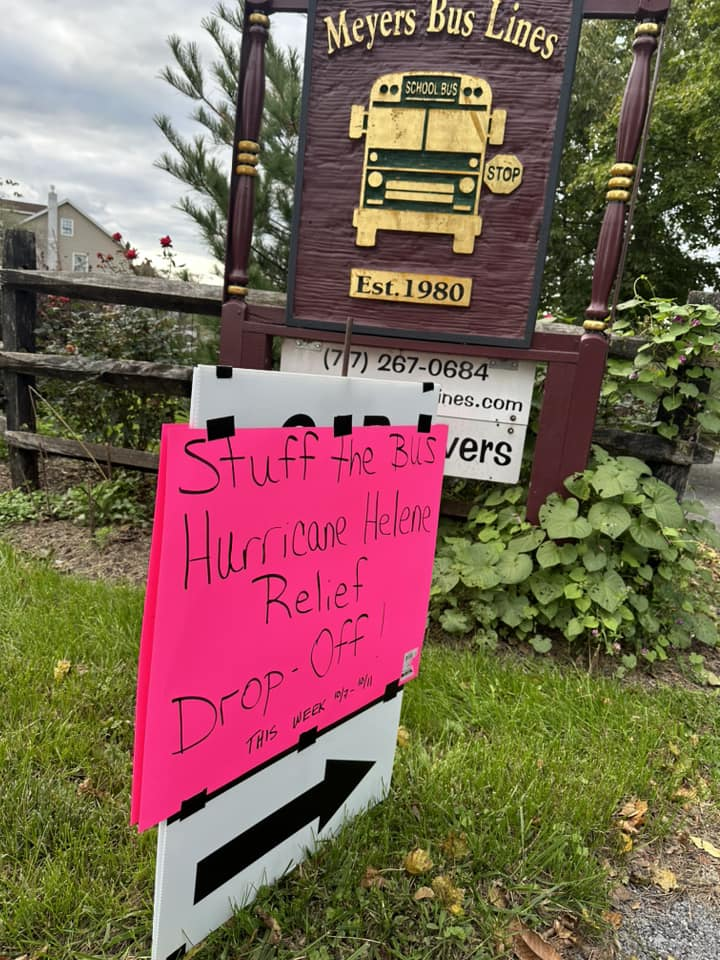 Meyers Bus Lines
SCHOOL BUS
STOP
Est.1980
(717) 267-0684
ines.com
vers
Stuff the Bus
Hurricane Helene
Relief
Drop-Off!
THIS WEEK 10/7-10/11